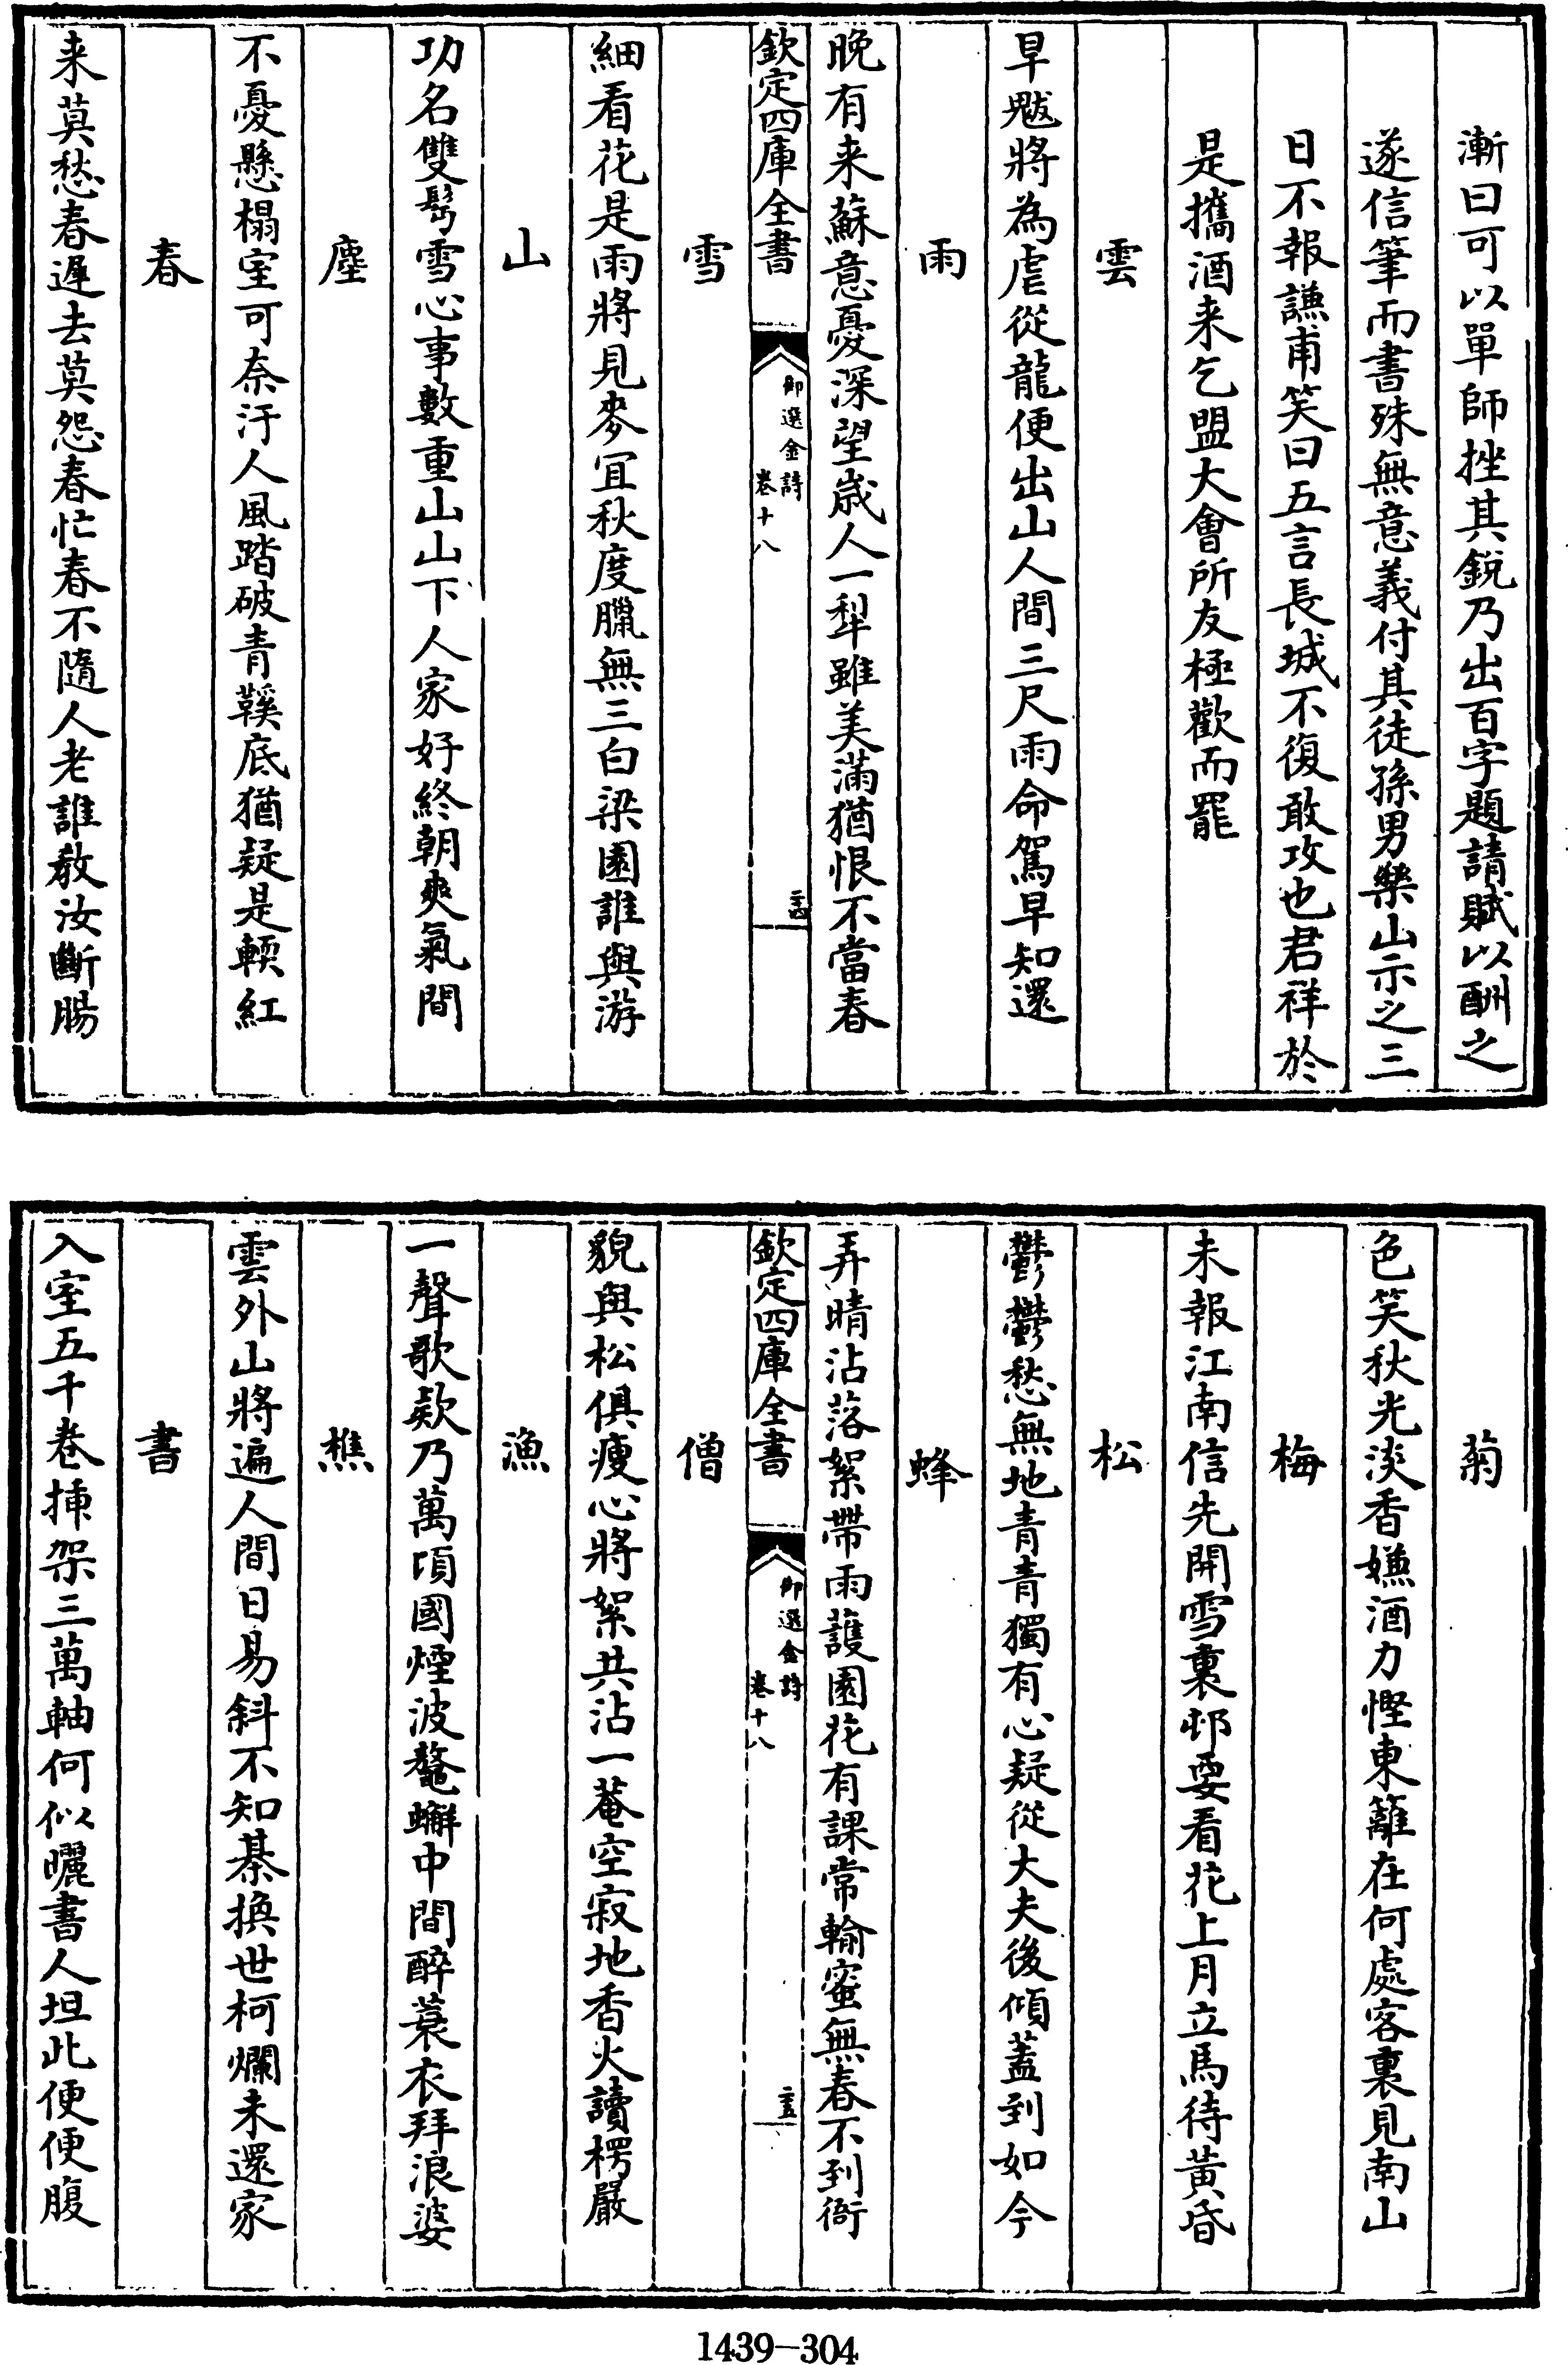 漸曰可以單師挫其鋭乃出百字題請賦以酬之
遂信筆而書殊無意義付其徒孫男樂山示之三
日不報謙甫笑曰五言長城不復敢攻也君祥於
是攜酒来乞盟大會所友極歡而罷
雲
旱魃將為虐從龍便出山人間三尺雨命駕早知還
雨
晚有来蘇意憂深望歲人一犂雖美滿猶恨不當春
欽定四庫全書
御選金詩
卷十八
二十四
雪
細看花是雨將見麥宜秋度臘無三白梁園誰與游
山
功名雙髩雪心事數重山山下人家好終朝爽氣間
塵
不憂懸榻室可奈汙人風踏破青鞵底猶疑是輭紅
春
来莫愁春遲去莫怨春忙春不隨人老誰教汝斷腸
菊
色笑秋光淡香嫌酒力慳東籬在何處客裏見南山
梅
未報江南信先開雪裏邨要看花上月立馬待黃昏
松
鬱鬱愁無地青青獨有心疑從大夫後傾蓋到如今
蜂
弄晴沾落絮帶雨護園花有課常輸蜜無春不到衙
欽定四庫全書
御選金詩
卷十八
二十五
僧
貌與松俱瘦心將絮共沾一菴空寂地香火讀楞嚴
漁
一聲歌欵乃萬頃國煙波鼇蠏中間醉蓑衣拜浪婆
樵
雲外山將遍人間日易斜不知棊換世柯爛未還家
書
入室五千卷揷架三萬軸何似曬書人坦此便便腹
1439-304